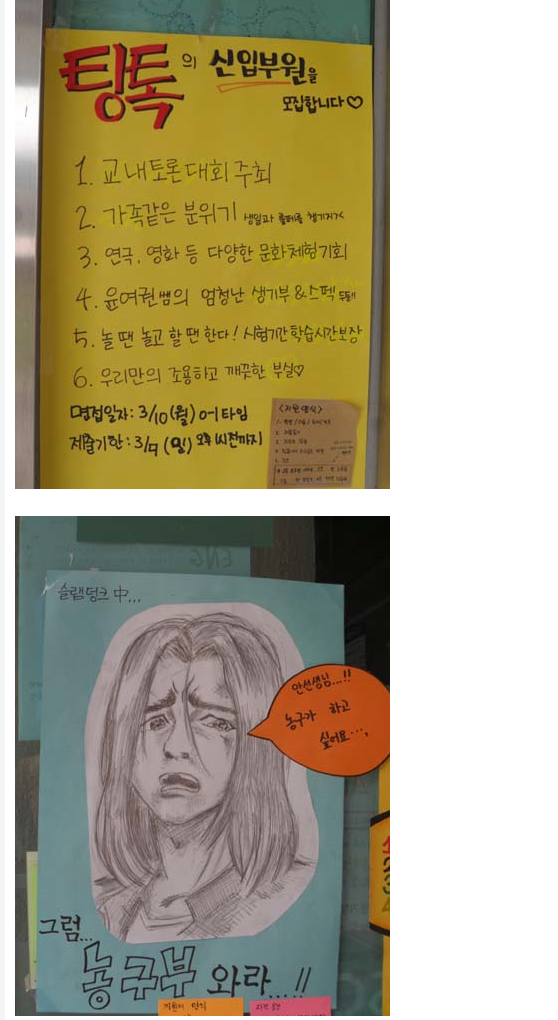 탕톡의 신입부원을
모집합니다♡
1. 교내토론대회 주최
2. 가족같은 분위기
3. 연극, 영화 등 다양한 문화체험기회
4. 윤여권쌤의 엄청난 생기부&스펙
5. 놀 땐 놀고 할 땐 한다! 시험기간 학습시간보장
6. 우리만의 조용하고 깨끗한 부실♡
면접일자: 3/10(월) 8,9타임
제출기한: 3/9 (일) 오후
<지원양식>
ENG
슬램덩크 中...
안선생님...!!
농구가 하고
싶어요...,
그럼...
농구부 와라...!!
지원서 양식